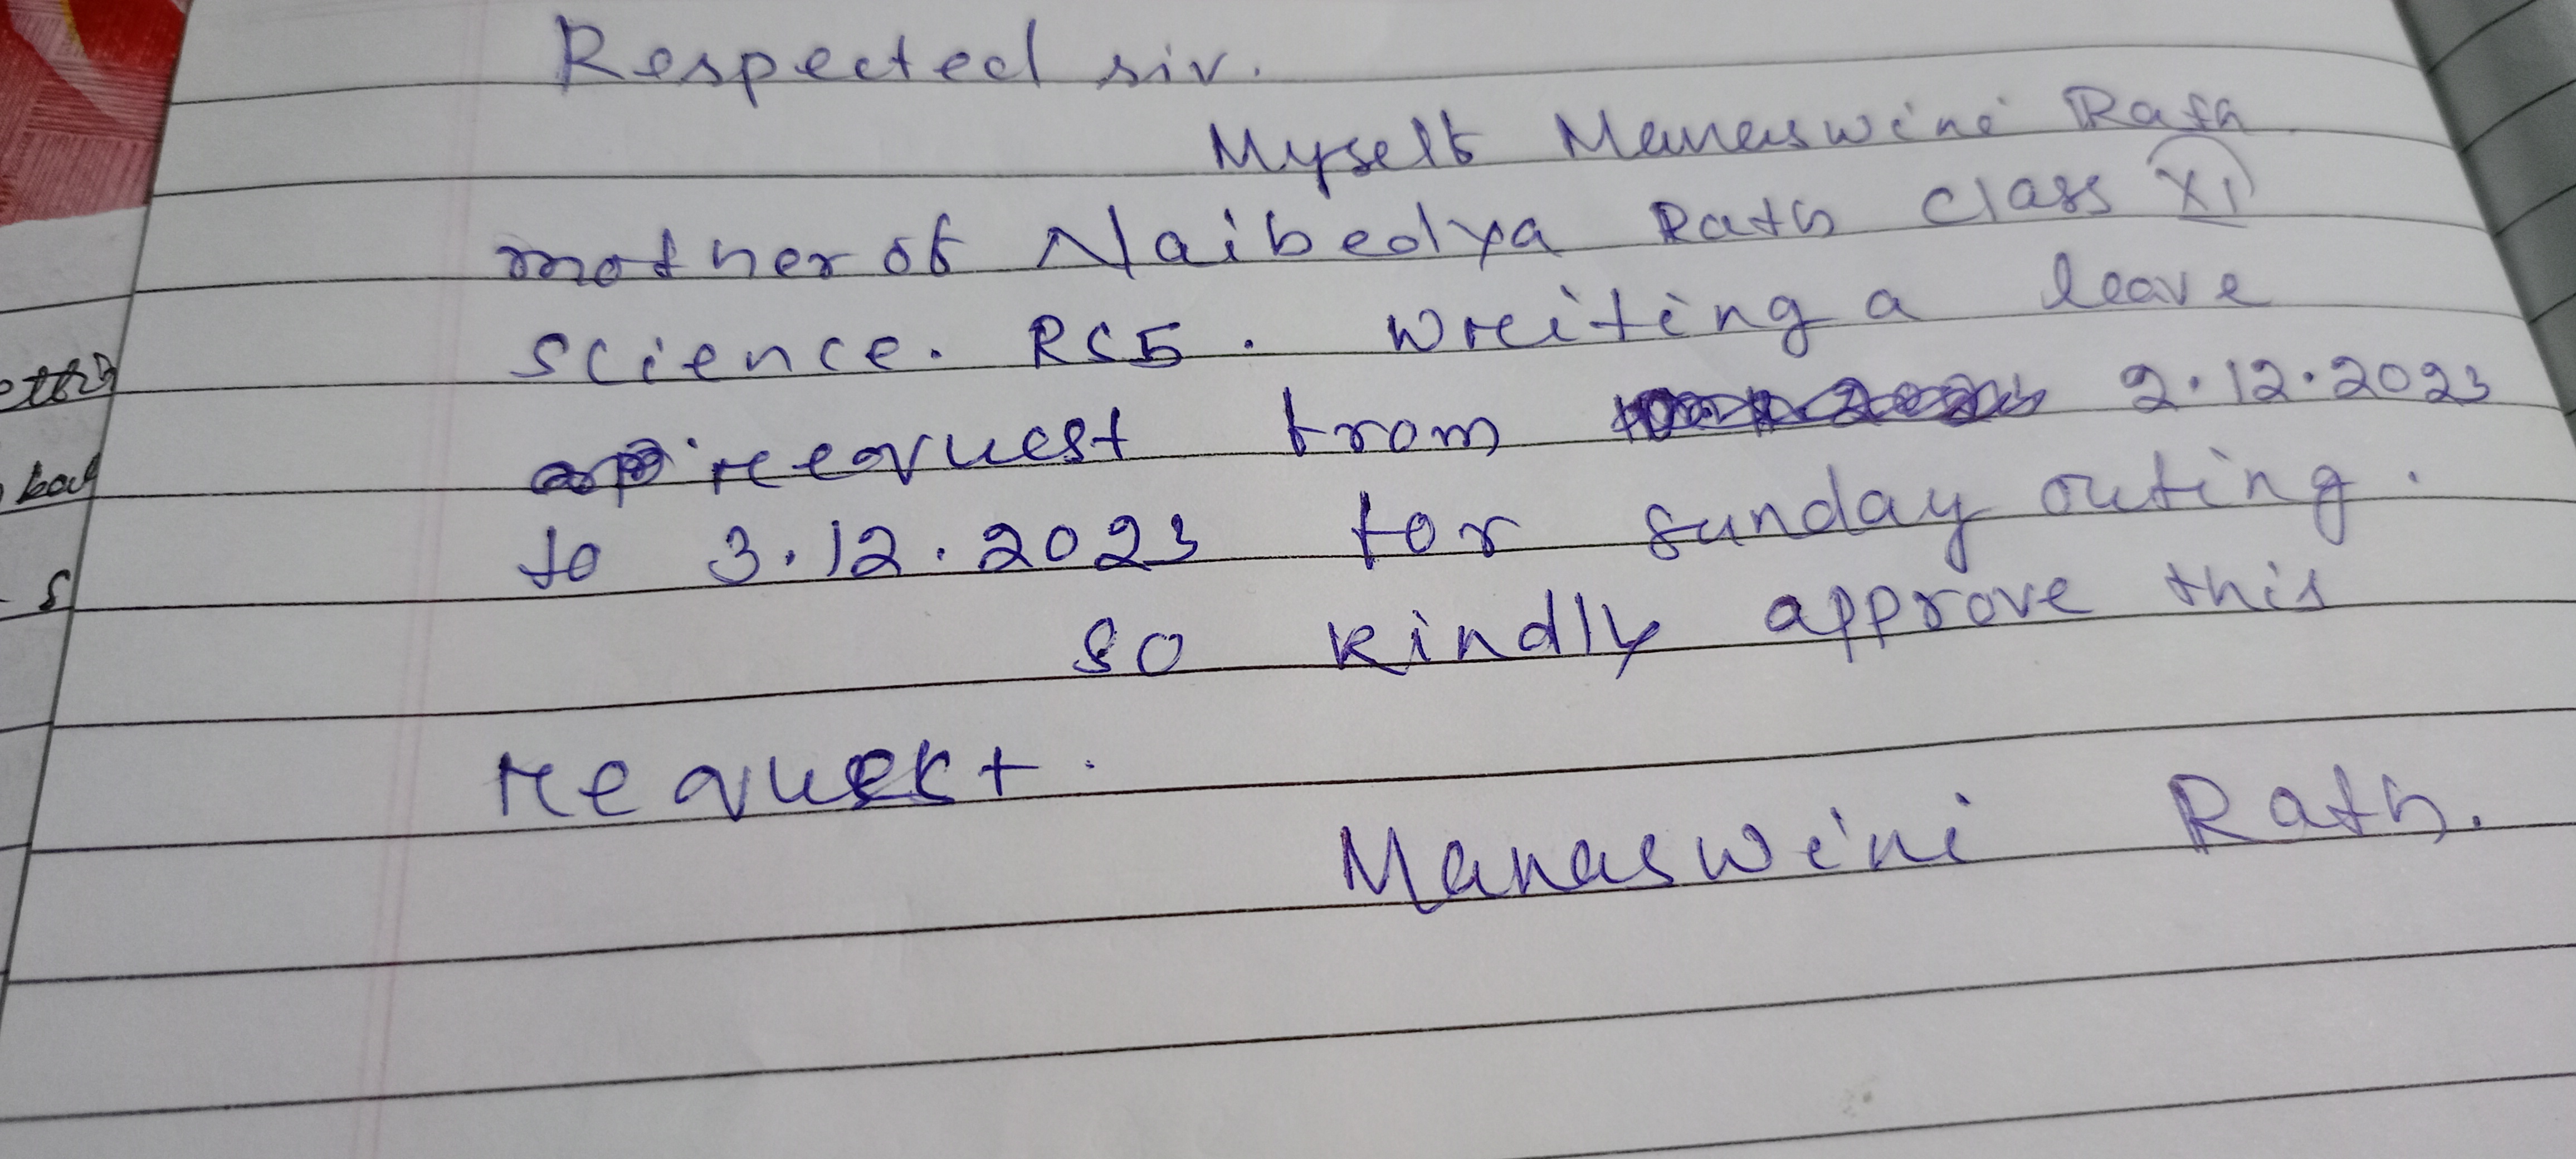 Respected sir.
Myself Manaswini Rath
mother of Naibedya Rath class XI
science. RS5. writing a leave
request from 2.12.2023
to 3.12.2023 for sunday outing.
so kindly approve this
request.
Manaswini Rath.